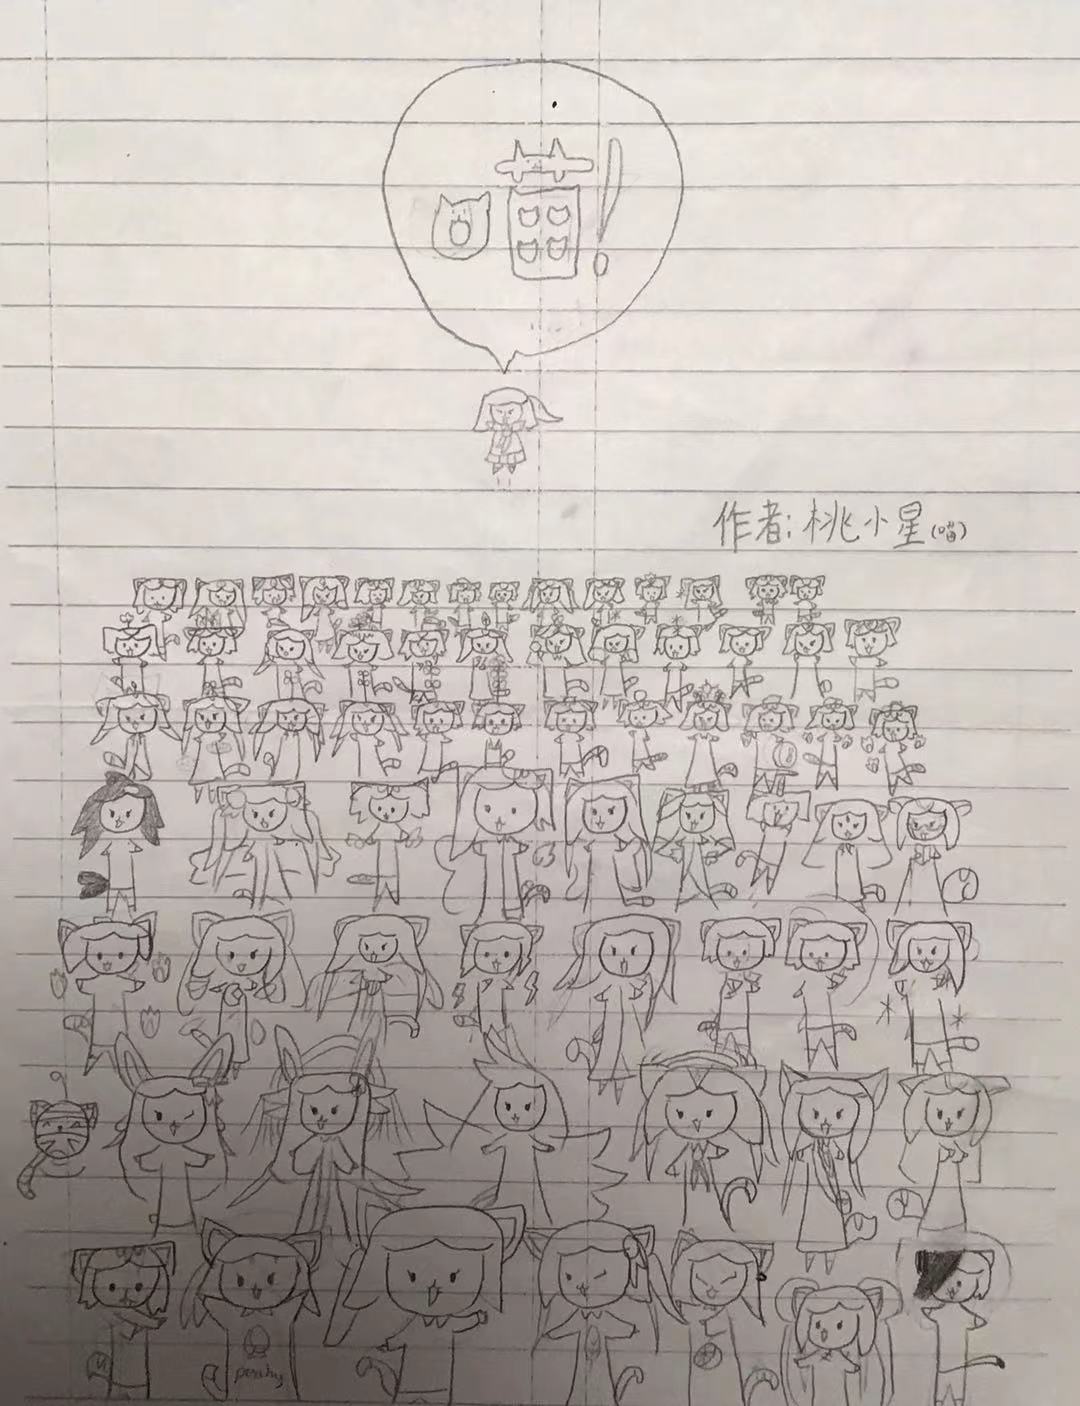 作者:桃小星(喵)
peachy